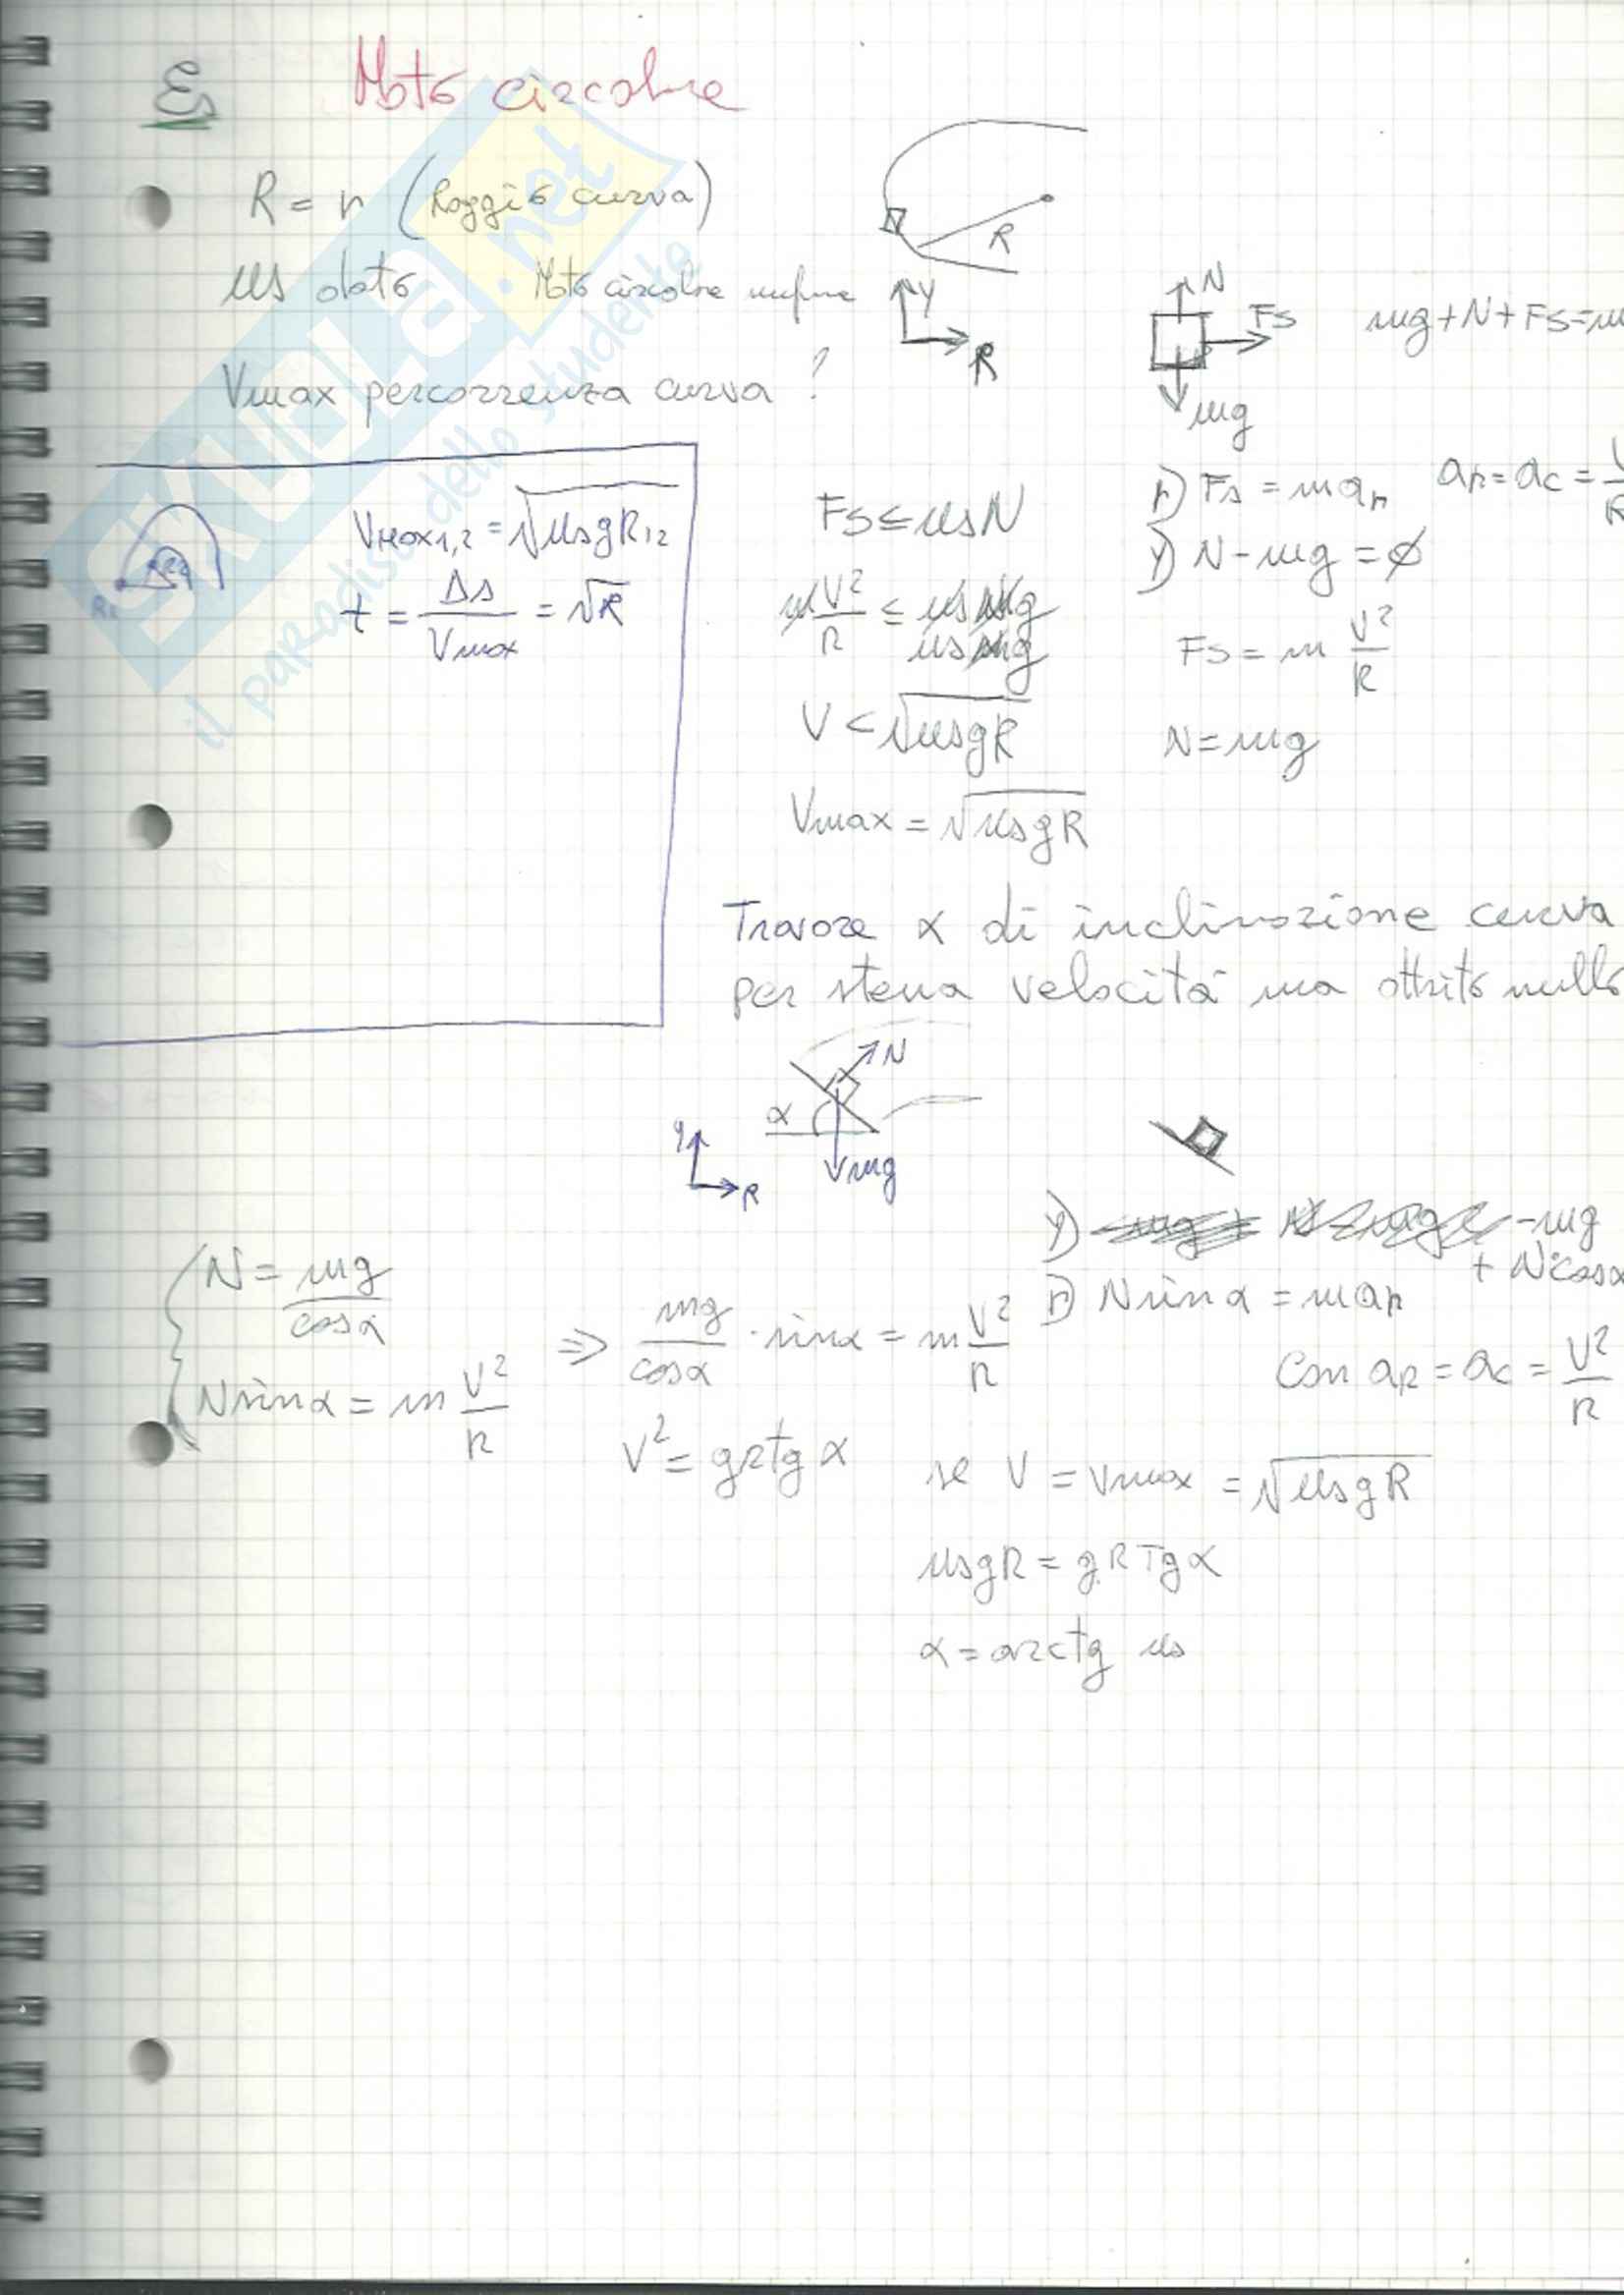 Es Moto circolare
R = r (Raggio curva)
R
μs dato Moto circolare uniforme
Y
R
N
Fs
mg
mg+N+Fs=m
Vmax percorrenza curva ?
VMax1,2 = √μsgR12
t = Δs/Vmax = √R
R1
R2
Fs ≤ μsN
mV²/R ≤ μs mg
μs mg
V < √μsgR
Vmax = √μsgR
r) Fs = mar ar = ac = V/R
y) N - mg = ∅
Fs = m V²/R
N = mg
Trovare α di inclinazione curva
per stessa velocità ma attrito nullo
N
α
mg
y
R
y) -mg
+ N·cosα
r) N sin α = m ar
Con ar = ac = V²/R
N = mg/cosα
N sin α = m V²/R
⇒ mg/cosα · sinα = m V²/R
V² = gr tg α
se V = Vmax = √μsgR
μsgR = gR Tg α
α = arctg μs
SKUOLA.net
il paradiso dello studente